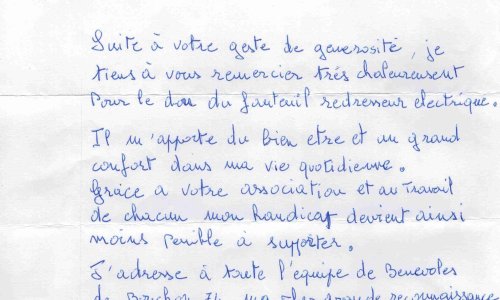 Suite à votre geste de generosité, je
tiens à vous remercier très chaleureusent
Pour le don du fauteuil redresseur electrique.
Il m'apporte du bien etre et un grand
confort dans ma vie quotidienne.
Grâce a votre association et au Travail
de chacun mon handicap devient ainsi
moins penible à supporter.
J'adresse à toute l'equipe de Benevoles
de ma plus grande reconnaissance